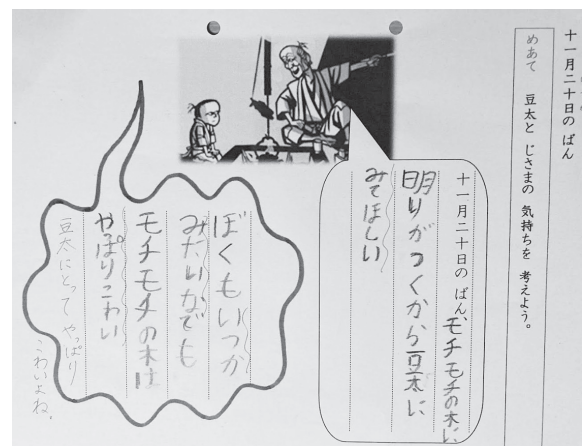 十一月二十日の ばん
めあて 豆太と じさまの 気持ちを 考えよう。
十一月二十日の ばん、モチモチの木に
明りがつくから豆太に
みてほしい
ぼくもいつか
みたいなでも
モチモチの木は
やっぱりこわい
豆太にとって やっぱり
こわいよね。